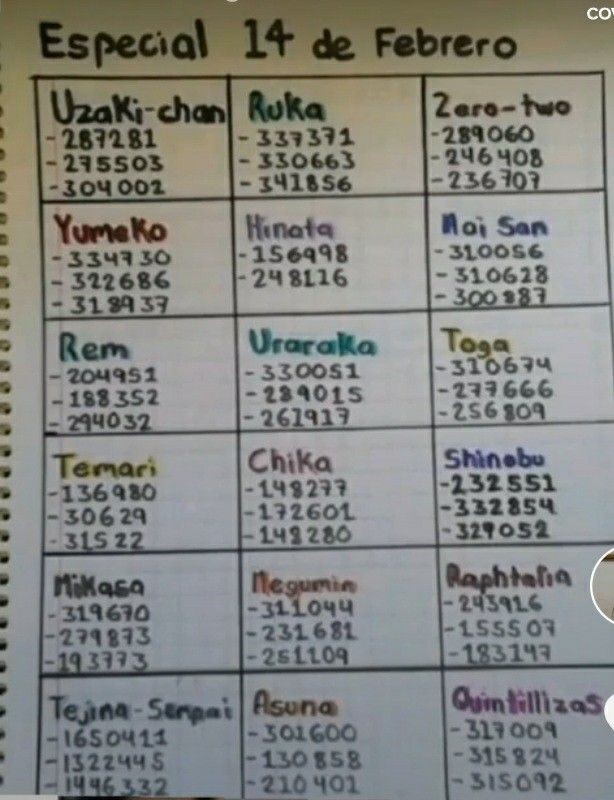 Especial 14 de Febrero
Uzaki-chan
-287281
-275503
-304002
Ruka
-337371
-330663
-341856
Zero-two
-289060
-246408
-236707
Yumeko
-334730
-322686
-318937
Hinata
-156998
-248116
Mai San
-310056
-310628
-300887
Rem
-204951
-188352
-294032
Uraraka
-330051
-289015
-261917
Toga
-310674
-277666
-256809
Temari
-136980
-30629
-31522
Chika
-148277
-172601
-148280
Shinobu
-232551
-332854
-327052
Mikasa
-319670
-279873
-193773
Megumin
-311044
-231681
-251109
Raphtalia
-243916
-155507
-183147
Tejina-Senpai
-1650411
-1322445
-1446332
Asuna
-301600
-130858
-210401
Quintillizas
-317009
-315824
-315092